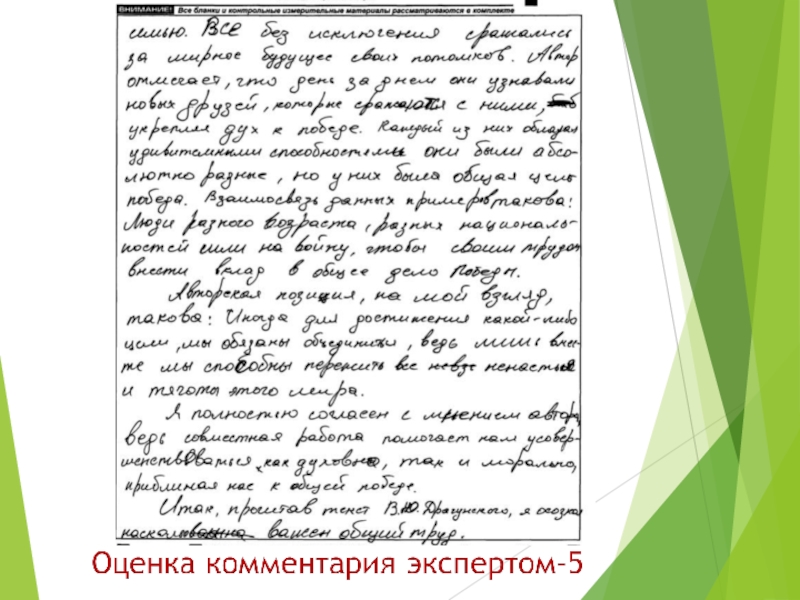 ВНИМАНИЕ! Все бланки и контрольные измерительные материалы рассматриваются в комплекте
семью. ВСЕ без исключения сражались
за мирное будущее своих потомков. Автор
отмечает, что день за днем они узнавали
новых друзей, которые сражаются с ними,
укрепляя дух к победе. Каждый из них обладал
удивительными способностями они были абсо-
лютно разные, но у них была общая цель
победа. Взаимосвязь данных примеров такова:
Люди разного возраста, разных националь-
ностей шли на войну, чтобы своим трудом
внести вклад в общее дело Победы.
Авторская позиция, на мой взгляд,
такова: Иногда для достижения какой-либо
цели, мы обязаны объединиться, ведь лишь вмес-
те мы способны пережить все ненастья
и тяготы этого мира.
Я полностью согласен с мнением автора,
ведь совместная работа помогает нам усовер-
шенствоваться, как духовно, так и морально,
приближая нас к общей победе.
Итак, прочитав текст В.Ю.Драгунского, я осознал
насколько важен общий труд.
Оценка комментария экспертом-5